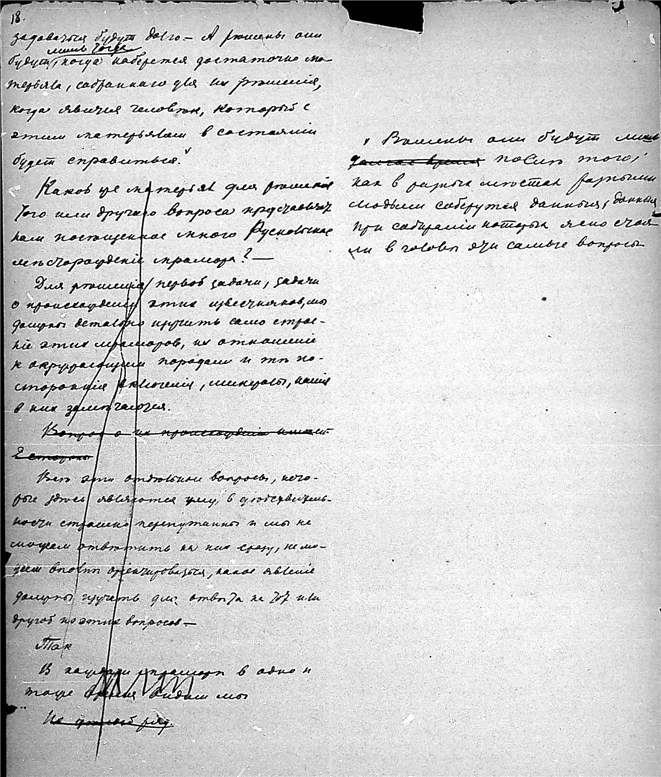 18.
задаваться будут долго — А решены они
лишь тогда
будут, когда наберется достаточно ма-
терьяла, собранного для их решения,
когда явится человек, который с
этим матерьялом в состоянии
будет справиться.
Каков же матерьял для решения
того или другого вопроса представляет
нам посещенное много Рускеальское
месторождение мрамора? —
Для решения первой задачи, задачи
о происхождении этих известняков, мы
должны детально изучить само строе-
ние этих мраморов, их отношение
к окружающим породам и те по-
сторонния включения, минералы, какия
в них замечаются.
Вопрос о их происхождении имеет
2 стороны
Все эти отдельные вопросы, кото-
рые здесь являются уму, в действитель-
ности страшно перепутанны и мы не
можем ответить на них сразу, не мо-
жем вполне ориентироваться, какое явление
должны изучить для ответа на тот или
другой из этих вопросов —
Так
В каждом мраморе в одно и
тоже время видим мы
На целый ряд
Решены они будут лишь
долгое время после того,
как в разных местах разными
людьми соберутся данныя, данныя
при собирании которых ясно стоя-
ли в голове эти самые вопросы